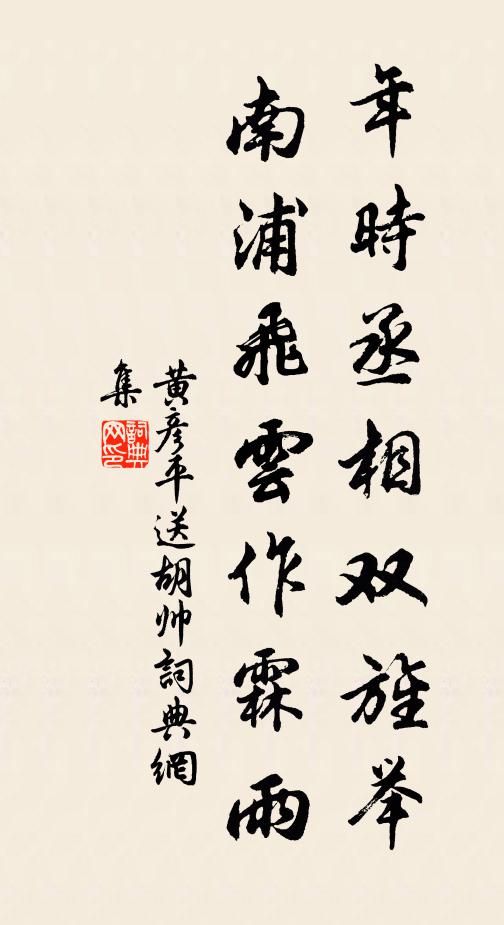 年時丞相双旌举
南浦飛雲作霖雨
黄彦平送胡帅詞典網
集
詞典网印